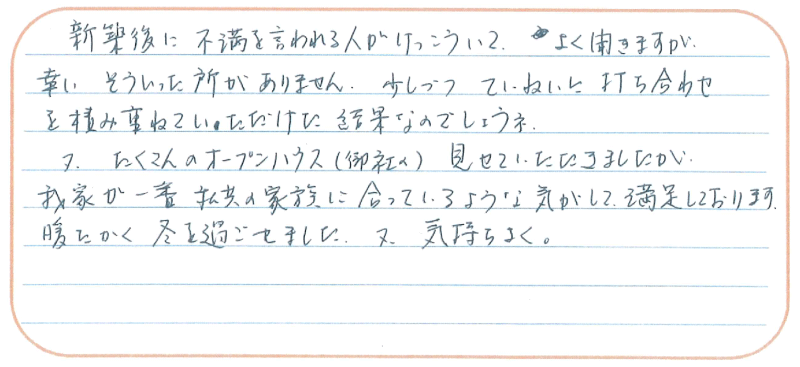 新築後に不満を言われる人がけっこういて、よく聞きますが、
幸い そういった所がありません。少しづつ ていねいに打ち合わせ
を積み重ねていただけた結果なのでしょうネ。
又、たくさんのオープンハウス(御社の) 見せていただきましたが、
我家が一番 私共の家族に合っているような気がして、満足しております。
暖たかく 冬を過ごせました。又、気持ちよく。